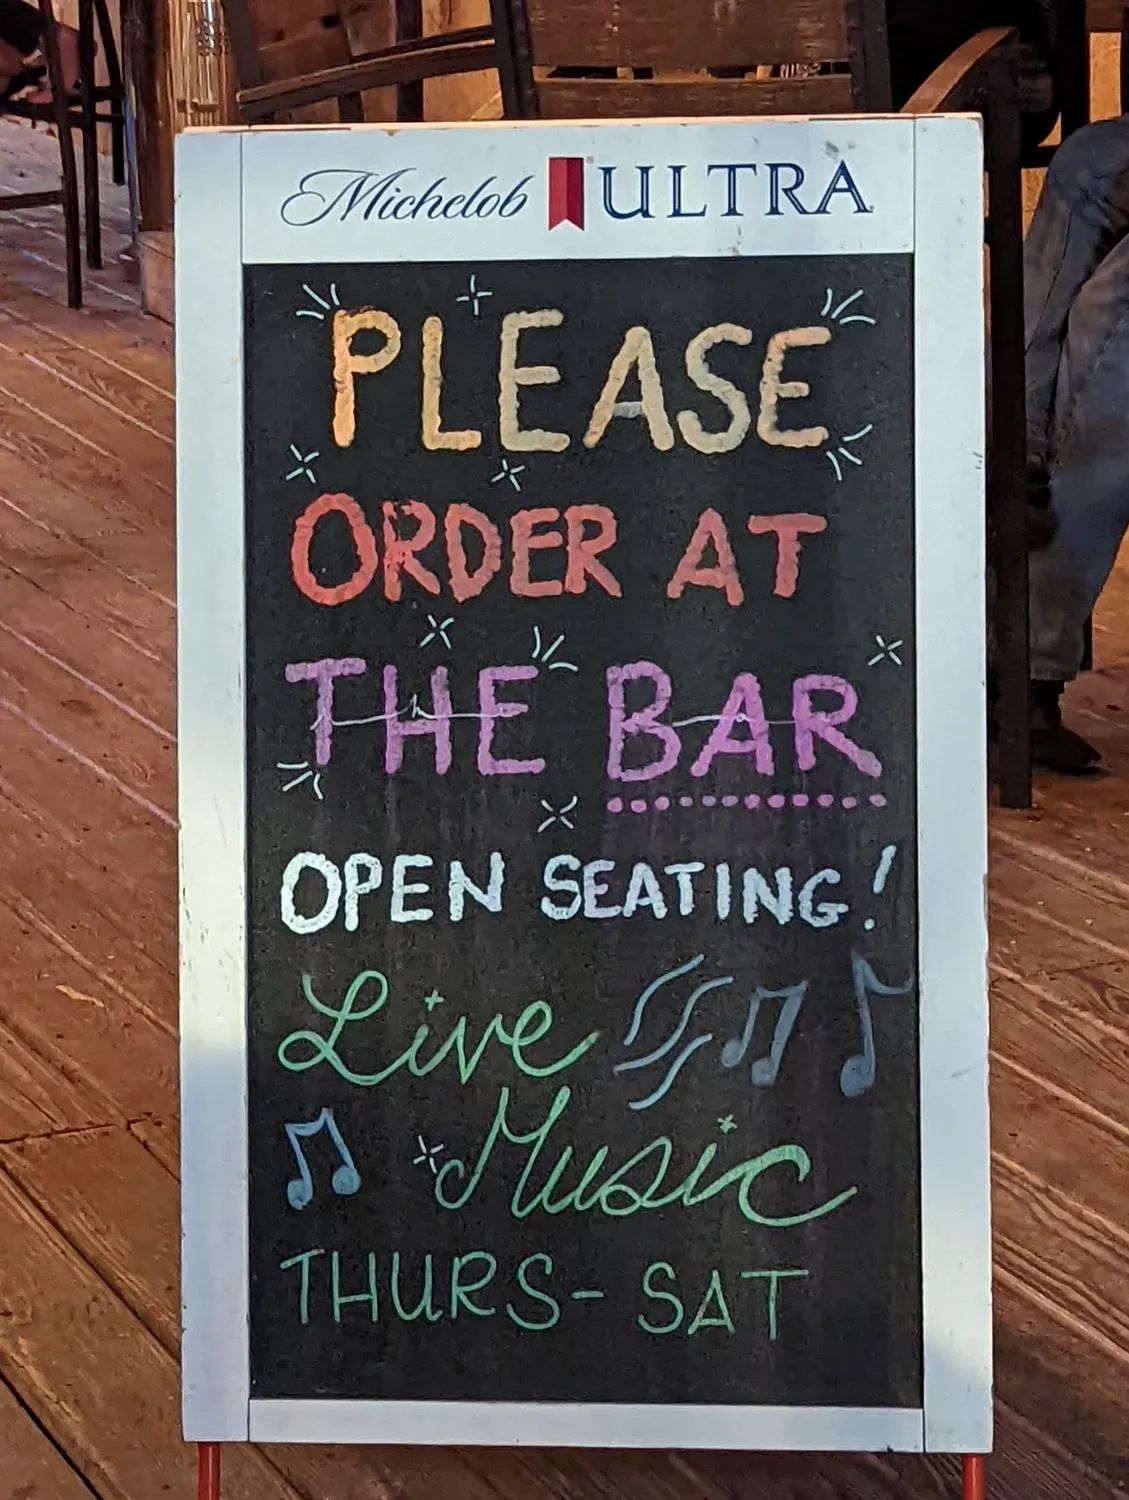 Michelob ULTRA
PLEASE
ORDER AT
THE BAR
OPEN SEATING!
Live
Music
THURS- SAT